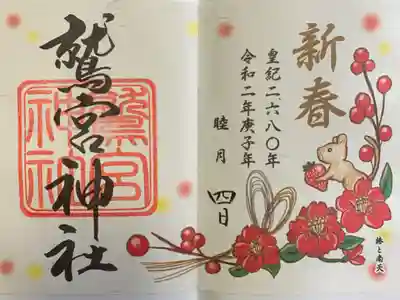 新春
皇紀二,六八〇年
令和二年庚子年
睦月
四日
椿と南天
鷲宮神社
鷲宮
神社